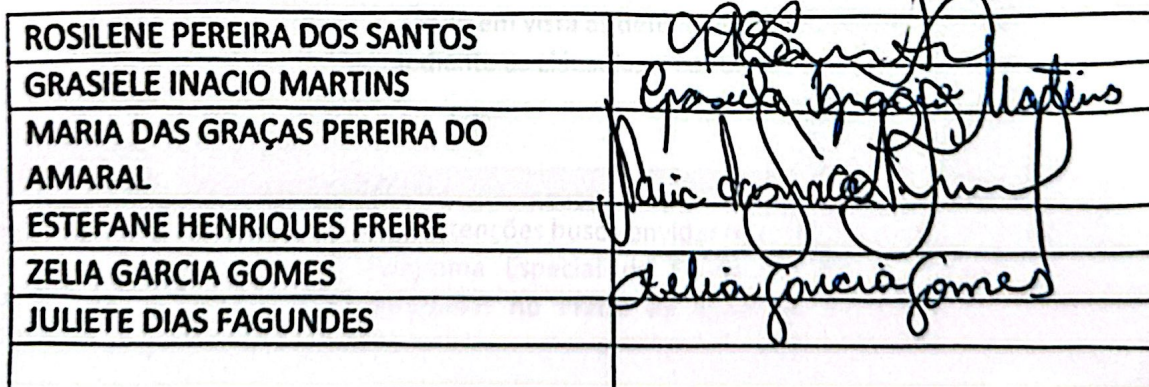 ROSILENE PEREIRA DOS SANTOS
GRASIELE INACIO MARTINS Martins
MARIA DAS GRAÇAS PEREIRA DO
AMARAL Maria das
ESTEFANE HENRIQUES FREIRE
ZELIA GARCIA GOMES Zelia Garcia Gomes
JULIETE DIAS FAGUNDES